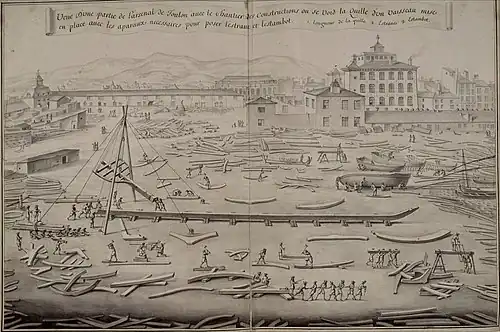 Veue d'vne partie de l'arsenal de Toulon auec le chantier des Constructions ou se Void la Quille d'vn Vaisseau mise
en place auec les aparaux necessaires pour poser l'estraue et l'estambot. 1. longueur de la quille 2. Estraue 3. Estambot